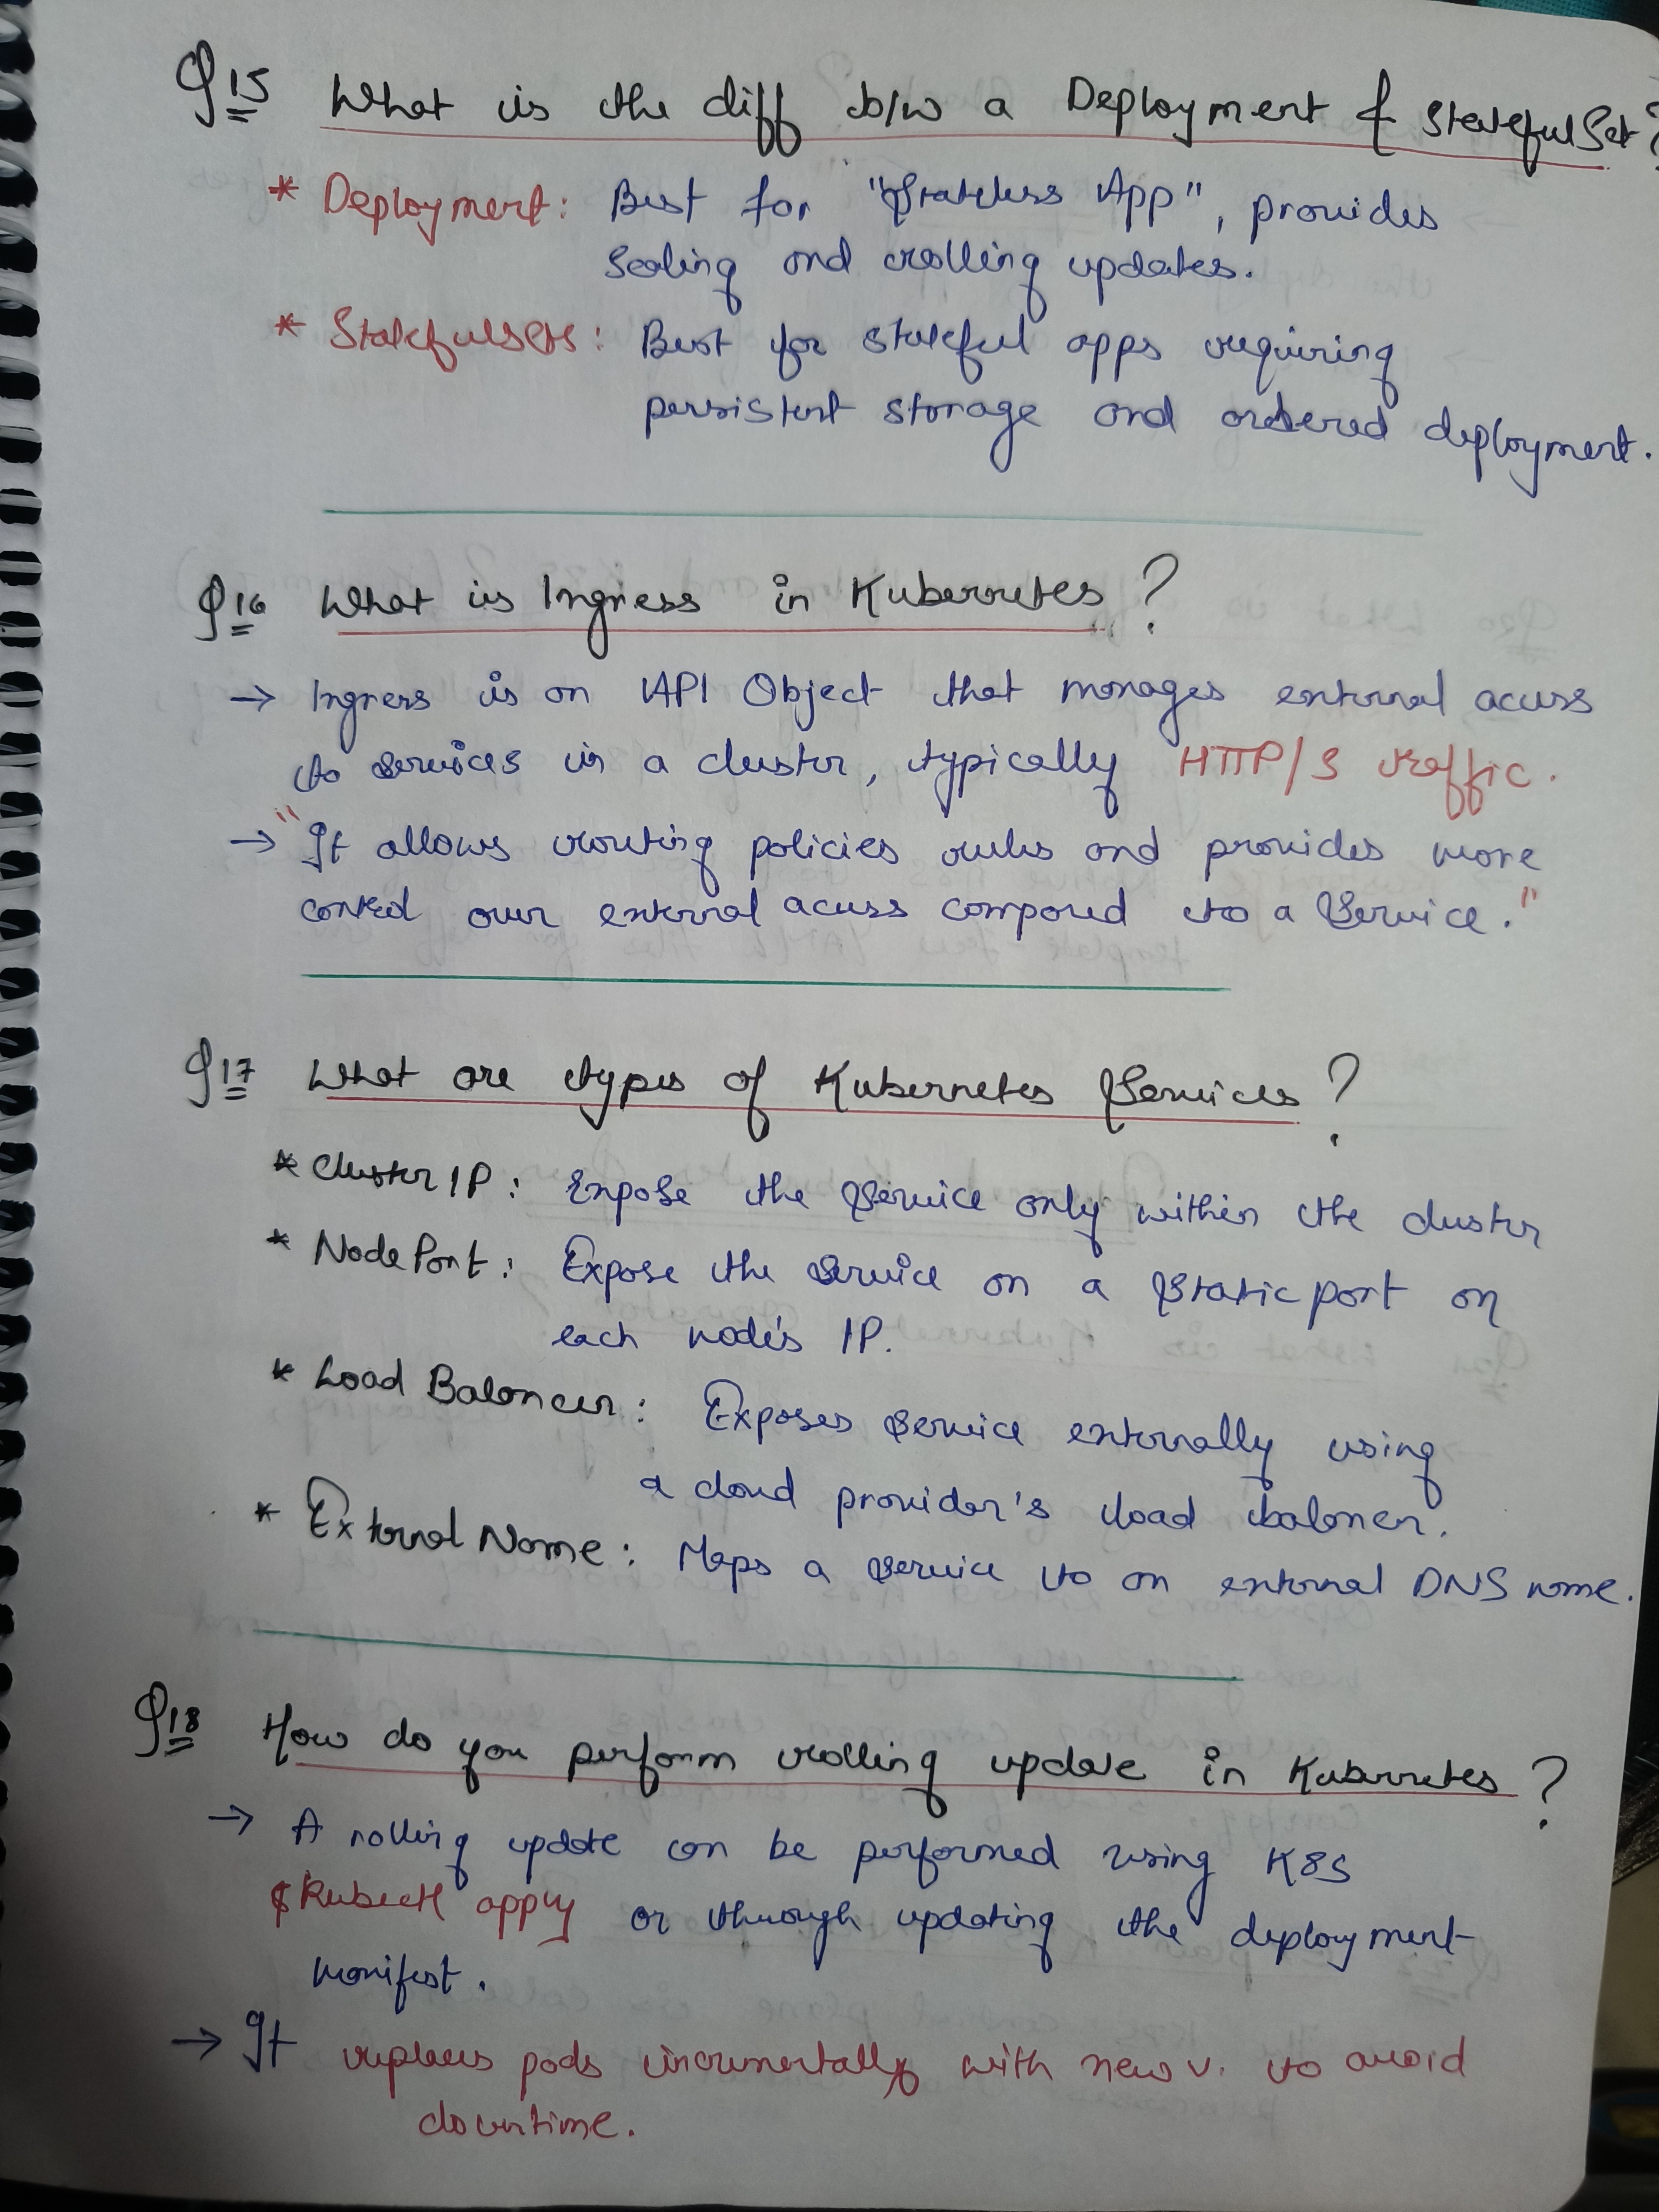 Q15 What is the diff b/w a Deployment & StatefulSet?
* Deployment: Best for "Stateless App", provides
Scaling and rolling updates.
* Statefulsets: Best for stateful apps requiring
persistent storage and ordered deployment.
Q16 What is Ingress in Kubernetes?
→ Ingress is an API Object that manages external access
to services in a cluster, typically HTTP/S traffic.
→ "It allows routing policies rules and provides more
control over external access compared to a Service."
Q17 What are types of Kubernetes Services?
* Cluster IP: Expose the Service only within the cluster
* NodePort: Expose the service on a Static port on
each node's IP.
* Load Balancer: Exposes Service externally using
a cloud provider's load balancer.
* External Name: Maps a service to an external DNS name.
Q18 How do you perform rolling update in Kubernetes?
→ A rolling update can be performed using K8S
$ kubectl apply or through updating the deployment
manifest.
→ It replaces pods incrementally with new v. to avoid
downtime.